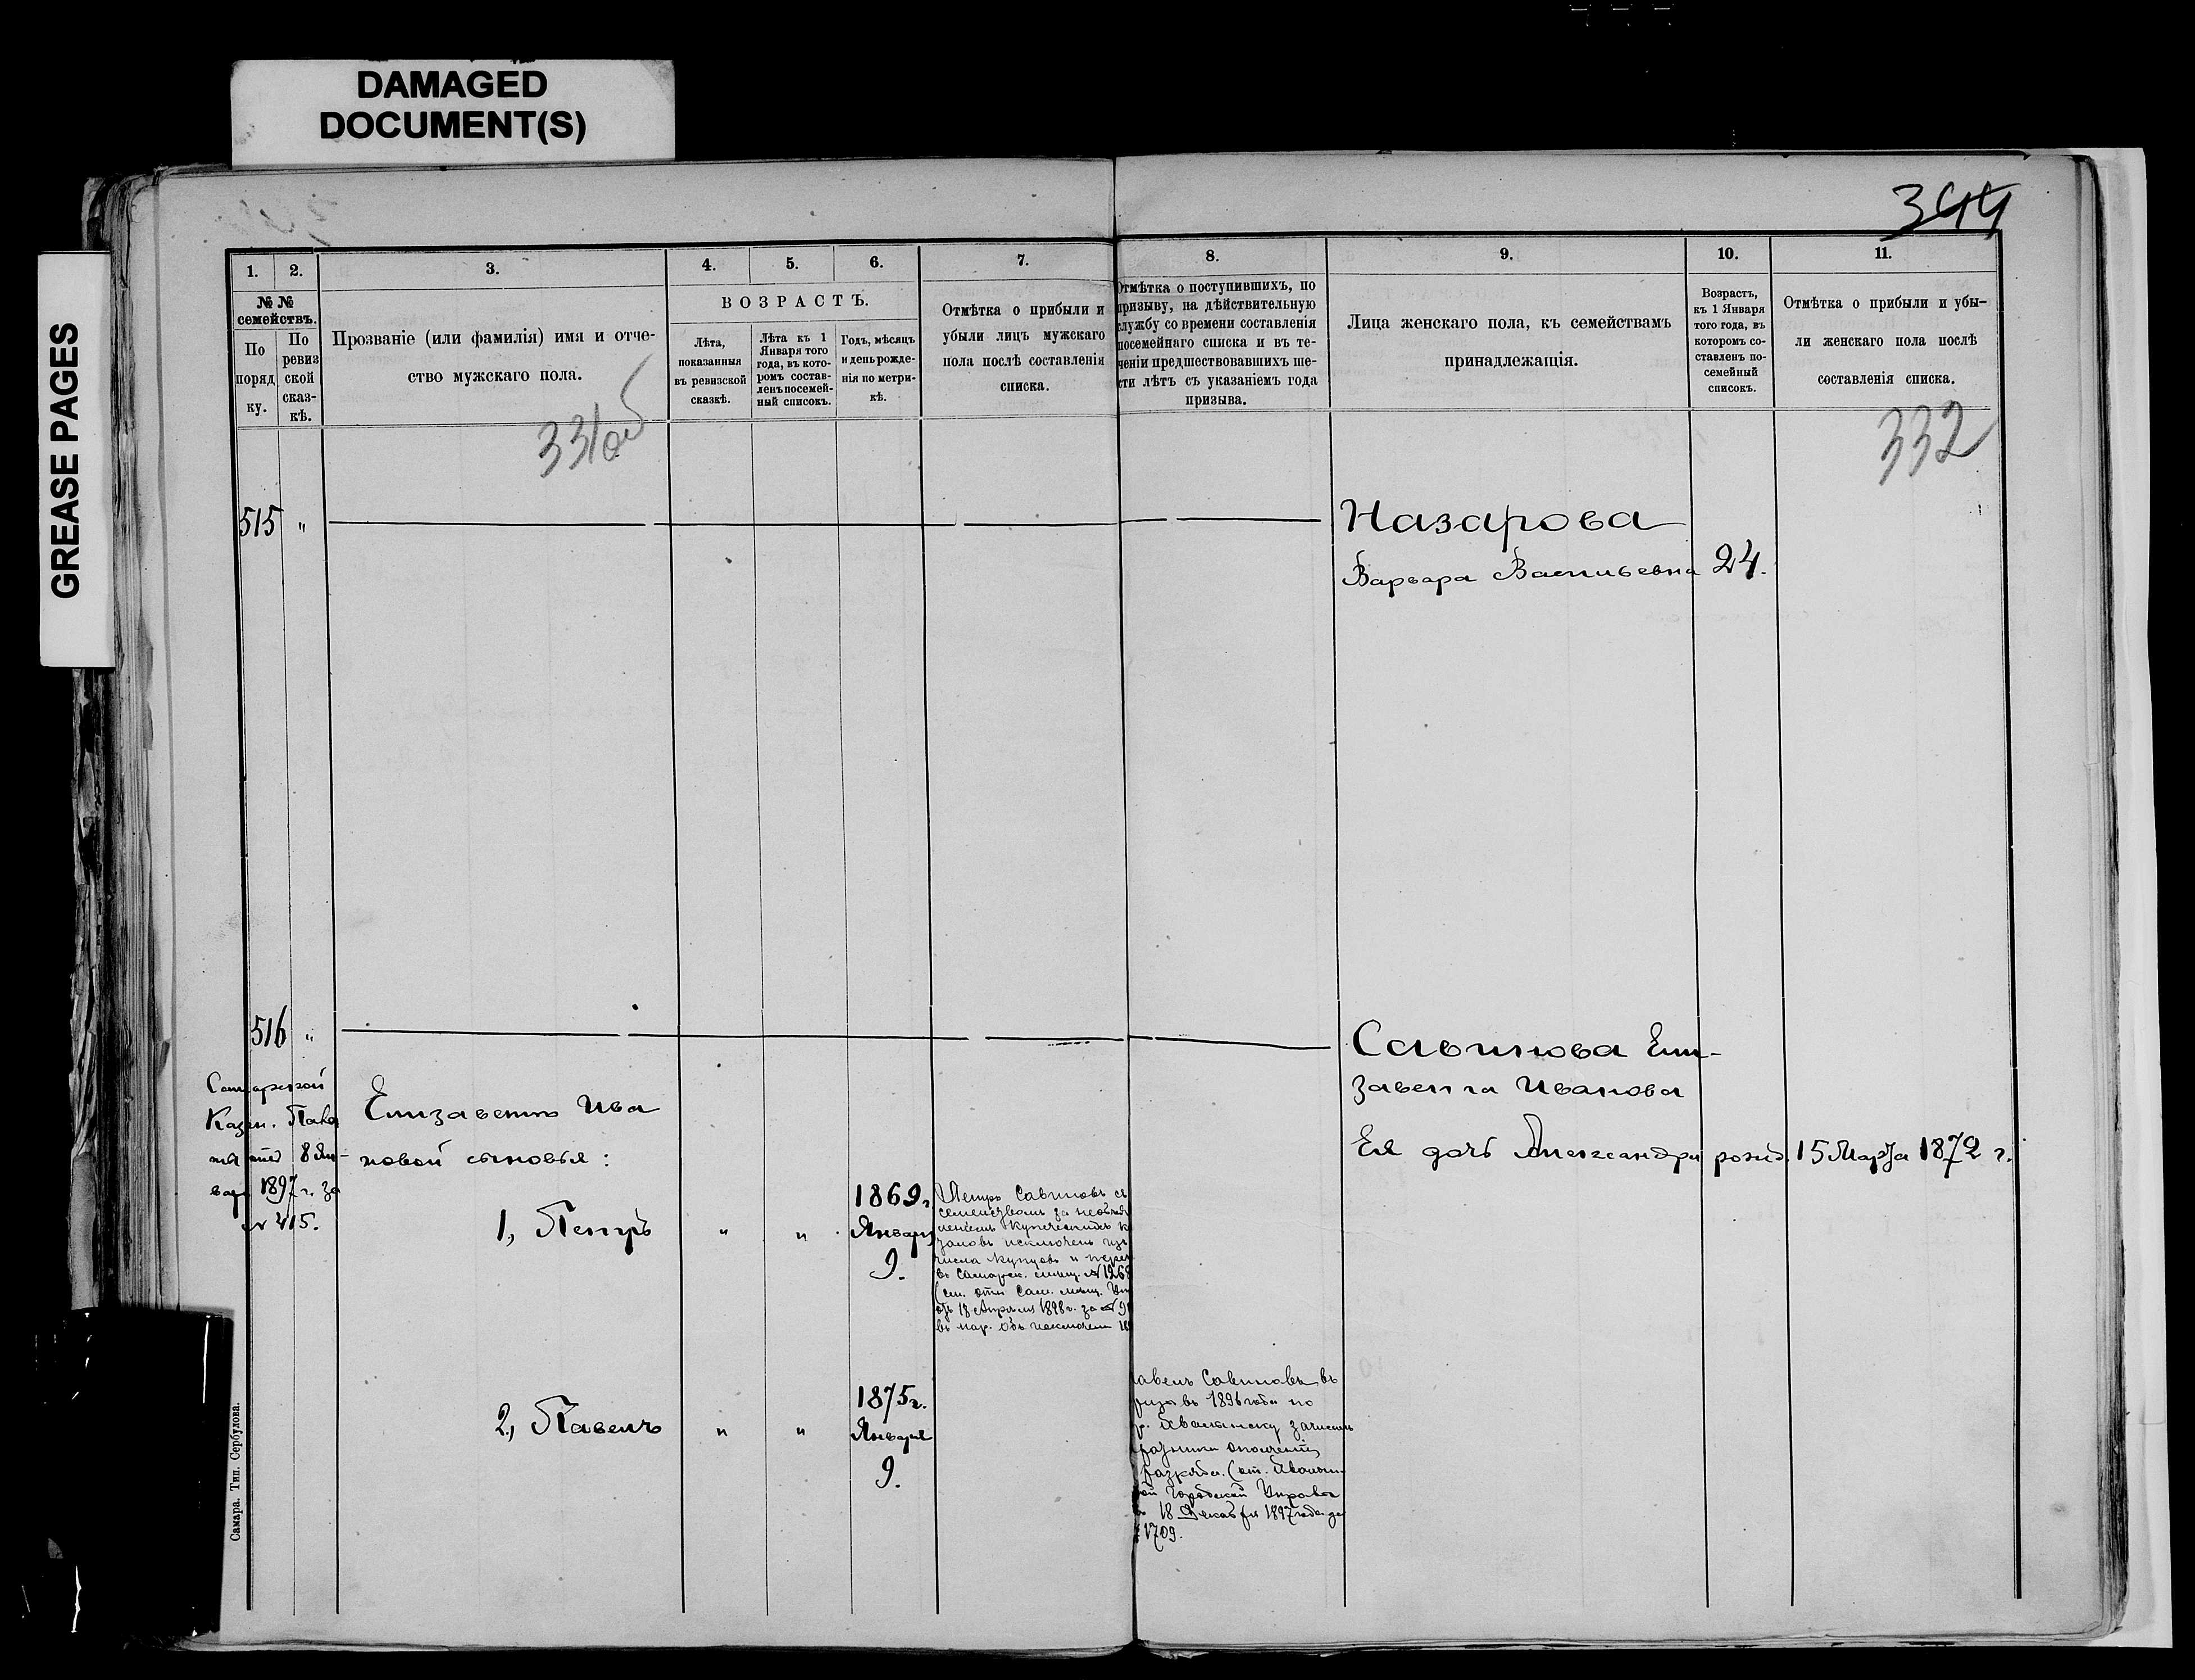 DAMAGED
DOCUMENT(S)
GREASE PAGES
344
1.
2.
3.
4.
5.
6.
7.
8.
9.
10.
11.
№ №
семействъ.
По
поряд
ку.
По
ревиз
ской
сказ-
кѣ.
Прозваніе (или фамилія) имя и отче-
ство мужскаго пола.
ВОЗРАСТЪ.
Лѣта,
показанныя
въ ревизской
сказкѣ.
Лѣта къ 1
Января того
года, въ кото-
ромъ состав-
ленъ посемей-
ный списокъ.
Годъ, мѣсяцъ
и день рожде-
нія по метри-
кѣ.
Отмѣтка о прибыли и
убыли лицъ мужскаго
пола послѣ составленія
списка.
Отмѣтка о поступившихъ, по
призыву, на дѣйствительную
службу со времени составленія
посемейнаго списка и въ те-
ченіи предшествовавшихъ ше-
сти лѣтъ съ указаніемъ года
призыва.
Лица женскаго пола, къ семействамъ
принадлежащія.
Возрастъ,
къ 1 Января
того года, въ
которомъ со-
ставленъ по-
семейный
списокъ.
Отмѣтка о прибыли и убы-
ли женскаго пола послѣ
составленія списка.
331об
332
515 „
Назарова
Варвара Васильевна 24.
516 „
Савинова Ели-
завета Иванова
Ея дочь Александра рожд. 15 Марта 1872 г.
Самарской
Казен. Пала
ты отъ 8 Ян-
варя 1897 г. за
№ 415.
Елизаветы Ива
новой сыновья:
1, Петръ „ „
1869 г.
Января
9.
Петръ Савиновъ съ
семействомъ за необъяв
леніемъ Купеческихъ к
исключенъ изъ
числа Купцовъ и
въ Самарск. мѣщ. № 1268
(см. отн. Сам. мѣщ. Уп
отъ 18 Апрѣля 1898 г. за № 9
2, Павелъ „ „
1875 г.
Января
9.
авелъ Савиновъ въ
1896 года по
зачислен
ополченія
разряда. (от.
ой Городской Управы
18 Декабря 1897 года за
1709.
Самара. Тип. Сербулова.